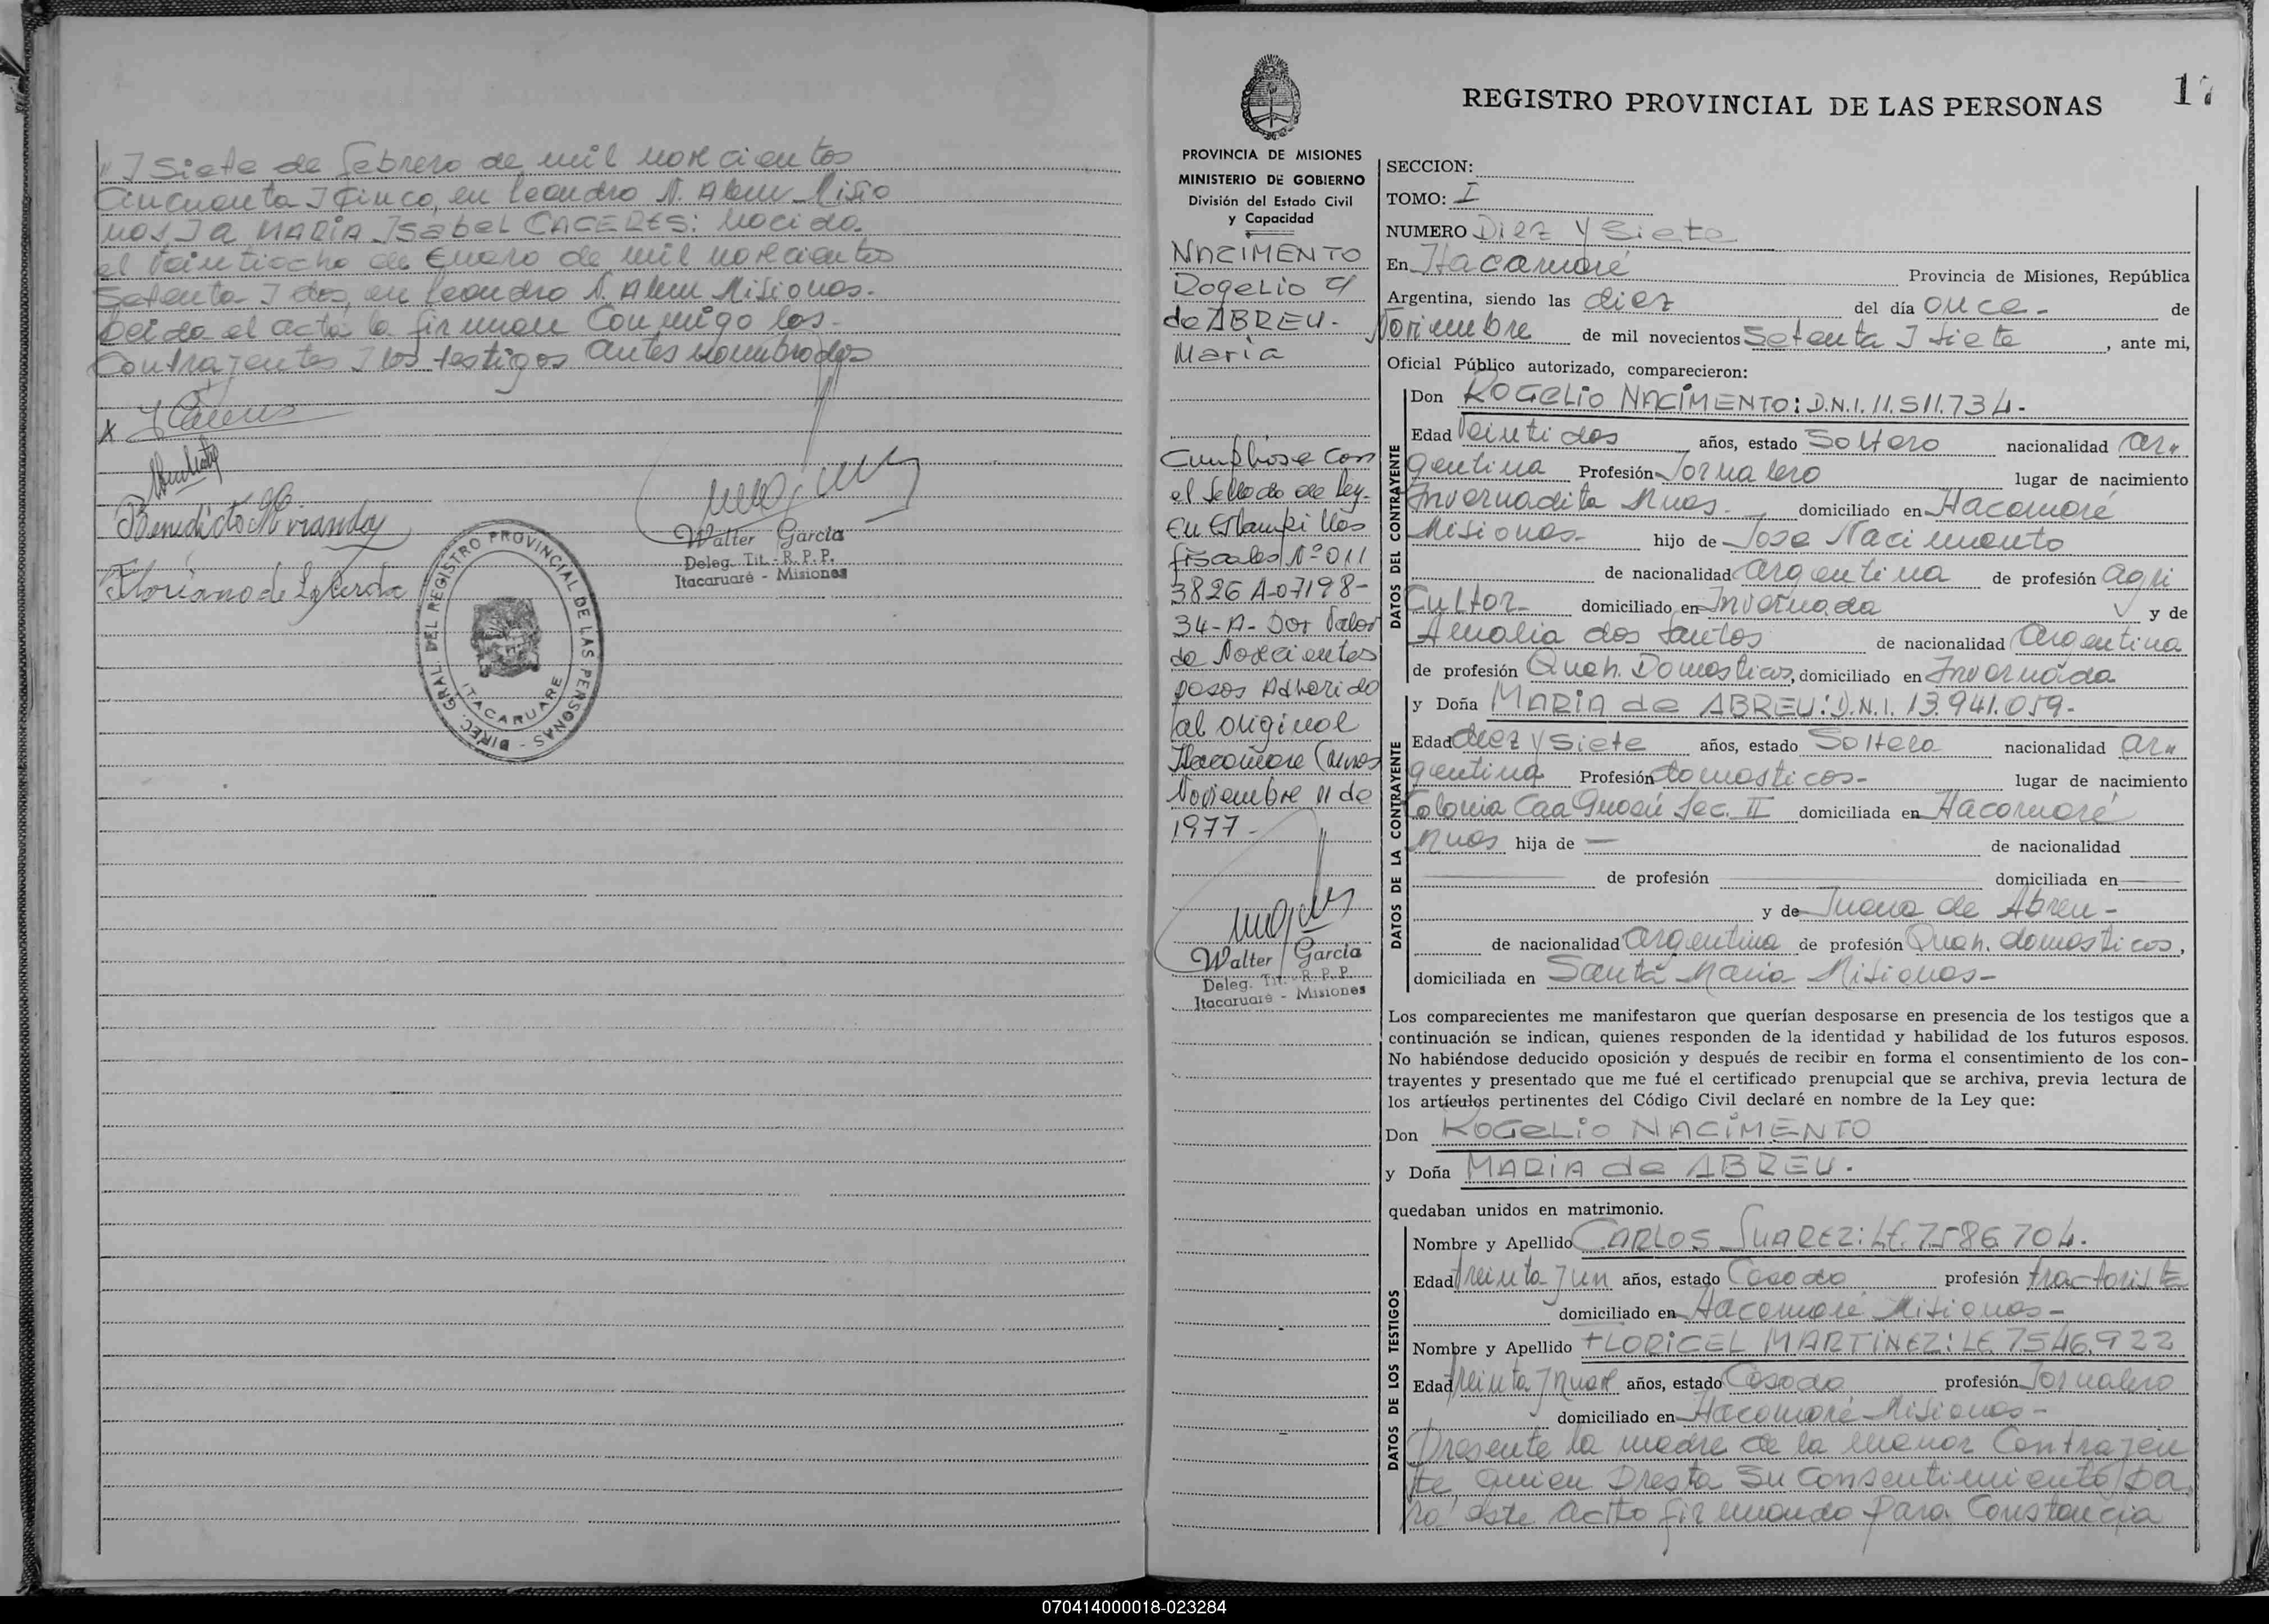 Y Siete de febrero de mil novecientos
Cincuenta Y Cinco, en Leandro N. Alem Misio
nes, Y a MARIA ISabeL CACERES: Nacida
el Veintiocho de Enero de mil novecientos
Setenta Y dos, en Leandro N. Alem Misiones.
Leida el acta la firman Conmigo los
Contrayentes Y los testigos antes nombrados
Benedicto Miranda
Floriano de Lacerda
Walter Garcia
Deleg. Tit. - R. P. P.
Itacaruaré - Misiones
DIREC. GRAL. DEL REGISTRO PROVINCIAL DE LAS PERSONAS -
ITACARUARE
17
REGISTRO PROVINCIAL DE LAS PERSONAS
PROVINCIA DE MISIONES
MINISTERIO DE GOBIERNO
División del Estado Civil
y Capacidad
NACIMENTO
Rogelio c/
de ABREU.
Maria
Cumplióse Con
el Sellado de Ley-
En Estampillas
fiscales Nº 011
3826 A-07198-
34-A- Por Valor
de Novecientos
pesos Adherido
al original
Itacaruare Mnes
Noviembre 11 de
1977-
Walter Garcia
Deleg. Tit. R. P. P.
Itacaruaré - Misiones
SECCION:
TOMO: I
NUMERO Diez Y Siete
En Itacaruaré Provincia de Misiones, República
Argentina, siendo las diez del día once- de
Noviembre de mil novecientos Setenta Y Siete, ante mi,
Oficial Público autorizado, comparecieron:
DATOS DEL CONTRAYENTE
Don ROGELIO NACIMENTO: D.N.I. 11.511.734-
Edad Veintidos años, estado Soltero nacionalidad Ar"
gentina Profesión Jornalero lugar de nacimiento
Invernadita Mnes. domiciliado en Itacaruaré
Misiones- hijo de Jose Nacimento
de nacionalidad argentina de profesión agri
Cultor- domiciliado en Invernada y de
Amalia dos Santos de nacionalidad Argentina
de profesión Queh. Domesticos, domiciliado en Invernada
DATOS DE LA CONTRAYENTE
y Doña MARIA de ABREU: D.N.I. 13.941.059-
Edad diez y Siete años, estado Soltera nacionalidad Ar"
gentina Profesión domesticos- lugar de nacimiento
Colonia Caa Guazú Sec. II domiciliada en Itacaruaré
Mnes hija de — de nacionalidad
de profesión domiciliada en
y de Juana de Abreu-
de nacionalidad argentina de profesión Queh. domesticos,
domiciliada en Santa Maria Misiones-
Los comparecientes me manifestaron que querían desposarse en presencia de los testigos que a
continuación se indican, quienes responden de la identidad y habilidad de los futuros esposos.
No habiéndose deducido oposición y después de recibir en forma el consentimiento de los con-
trayentes y presentado que me fué el certificado prenupcial que se archiva, previa lectura de
los artículos pertinentes del Código Civil declaré en nombre de la Ley que:
Don ROGELIO NACIMENTO
y Doña MARIA de ABREU.
quedaban unidos en matrimonio.
DATOS DE LOS TESTIGOS
Nombre y Apellido CARLOS SUAREZ: LE. 7.586.704.
Edad treinta Y un años, estado Casado profesión tractorista
domiciliado en Itacaruaré Misiones-
Nombre y Apellido FLORICEL MARTINEZ: LE 7.546.922
Edad treinta Y nueve años, estado Casado profesión Jornalero
domiciliado en Itacaruaré Misiones-
Presente la madre de la menor Contrayen
te, quien Presta Su Consentimiento pa
ra este acto firmando Para Constancia
070414000018-023284